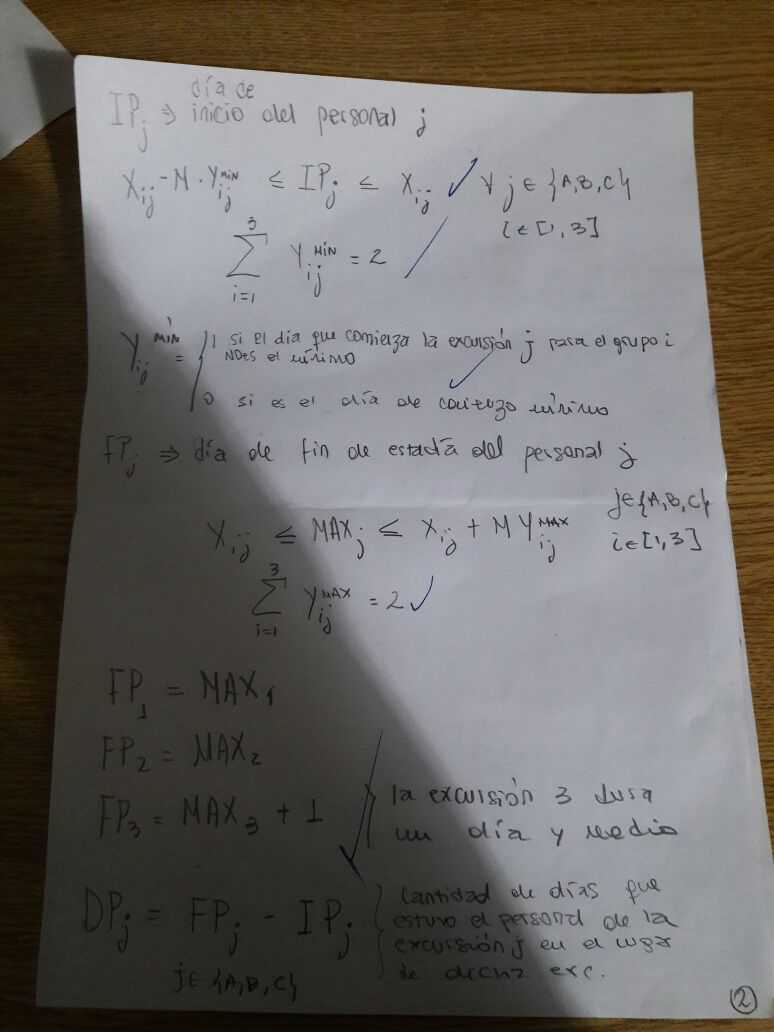 IPj ⇒ día de
inicio del personal j
Xij - M · Yij^MIN ≤ IPj ≤ Xij ∀ j ∈ {A,B,C}
i ∈ [1,3]
∑_{i=1}^{3} Yij^MIN = 2
Yij^MIN = { 1 si el día que comienza la excursión j para el grupo i
NO es el mínimo
0 si es el día de comienzo mínimo
FPj ⇒ día de fin de estadía del personal j
j ∈ {A,B,C}
Xij ≤ MAXj ≤ Xij + M Yij^MAX
i ∈ [1,3]
∑_{i=1}^{3} Yij^MAX = 2
FP1 = MAX1
FP2 = MAX2
FP3 = MAX3 + 1
la excursión 3 dura
un día y medio
DPj = FPj - IPj
j ∈ {A,B,C}
Cantidad de días que
estuvo el personal de la
excursión j en el lugar
de dicha exc.
2